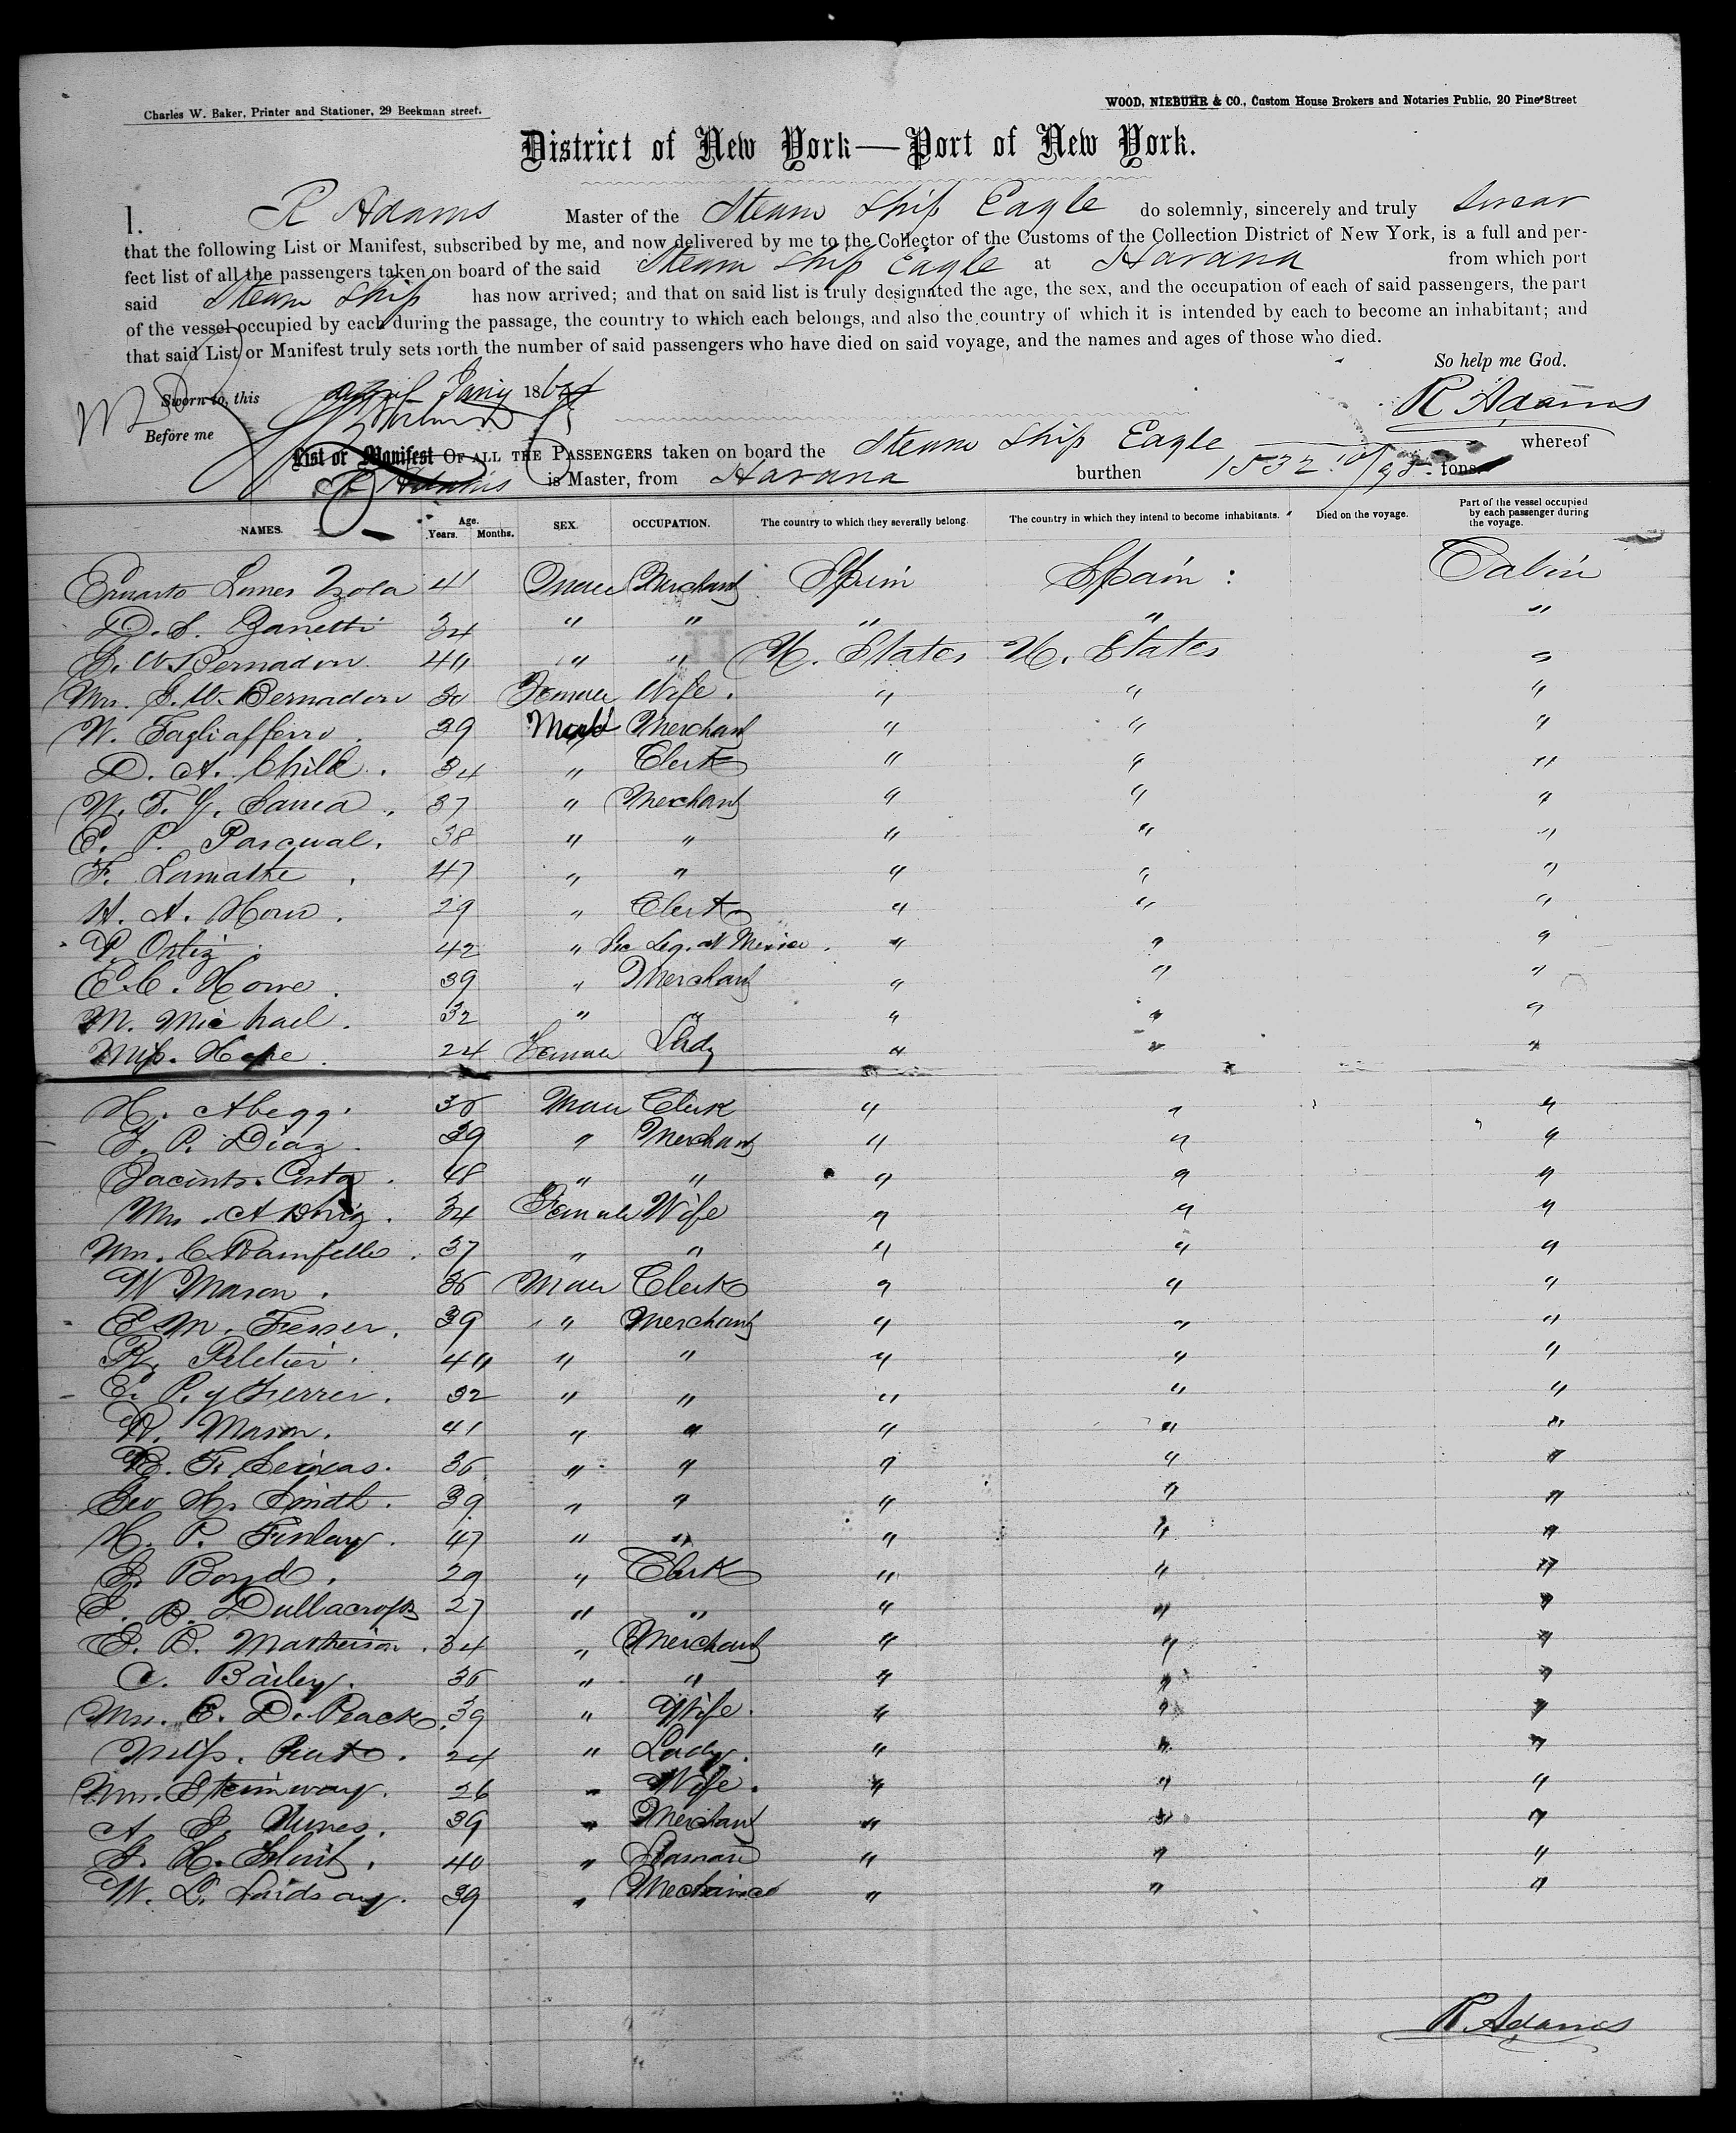 Charles W. Baker, Printer and Stationer, 29 Beekman street.
WOOD, NIEBUHR & CO., Custom House Brokers and Notaries Public, 20 Pine Street
District of New York—Port of New York.
I. R Adams Master of the Steam Ship Eagle do solemnly, sincerely and truly swear
that the following List or Manifest, subscribed by me, and now delivered by me to the Collector of the Customs of the Collection District of New York, is a full and per-
fect list of all the passengers taken on board of the said Steam Ship Eagle at Havana from which port
said Steam Ship has now arrived; and that on said list is truly designated the age, the sex, and the occupation of each of said passengers, the part
of the vessel occupied by each during the passage, the country to which each belongs, and also the country of which it is intended by each to become an inhabitant; and
that said List or Manifest truly sets forth the number of said passengers who have died on said voyage, and the names and ages of those who died.
So help me God.
Sworn to, this Jany 186
R Adams
Before me
List or Manifest OF ALL THE PASSENGERS taken on board the Steam Ship Eagle whereof
R Adams is Master, from Havana burthen 1532 10/95 tons.
NAMES. Age. Years. Months. SEX. OCCUPATION. The country to which they severally belong. The country in which they intend to become inhabitants. Died on the voyage. Part of the vessel occupied by each passenger during the voyage.
Ernesto Lones Zola 41 Male Merchant Spain Spain : Cabin
D. S. Zanetti 34 " " " " "
S. W. Bernadon 40 " " U. States U. States "
Mrs. S. W. Bernadon 30 Female Wife. " " "
W. Tagliafferro. 39 Male Merchant " " "
D. A. Child. 34 " Clerk " " "
W. F. Y. 37 " Merchant " " "
E. P. Pascual. 38 " " " " "
F. Lamathe. 47 " " " " "
H. A. Howe. 29 " Clerk " " "
P. Ortiz 42 " Sec Leg. of Mexico. " " "
E. C. Howe. 39 " Merchant " " "
M. Michael. 32 " " " " "
Miss. Hope. 24 Female Lady " " "
H. Abegg. 36 Male Clerk " " "
Y. P. Diaz. 39 " Merchant " " "
Jacinto Costa. 48 " " " " "
Mrs. A 34 Female Wife " " "
Mrs. C. 37 " " " " "
W Mason. 36 Male Clerk " " "
E. M. Fesser. 39 " Merchant " " "
R. Peletier. 40 " " " " "
E. P. y Ferrer. 32 " " " " "
R. Mason. 41 " " " " "
B. F. Seixas. 36 " " " " "
Geo H. Smith. 39 " " " " "
H. P. Finlay. 47 " " " " "
S. Boyd. 29 " Clerk " " "
S. B. Dullacross 27 " " " " "
E. B. Matherson. 34 " Merchant " " "
C. Bailey. 36 " " " " "
Mrs. E. D. Peack. 39 " Wife. " " "
Miss. 24 " Lady. " " "
Mrs. Steinway. 26 " Wife. " " "
A. S. Nunes. 39 " Merchant " " "
F. H. 40 " Seaman " " "
W. L. Lindsay. 39 " Mechanic " " "
R. Adams